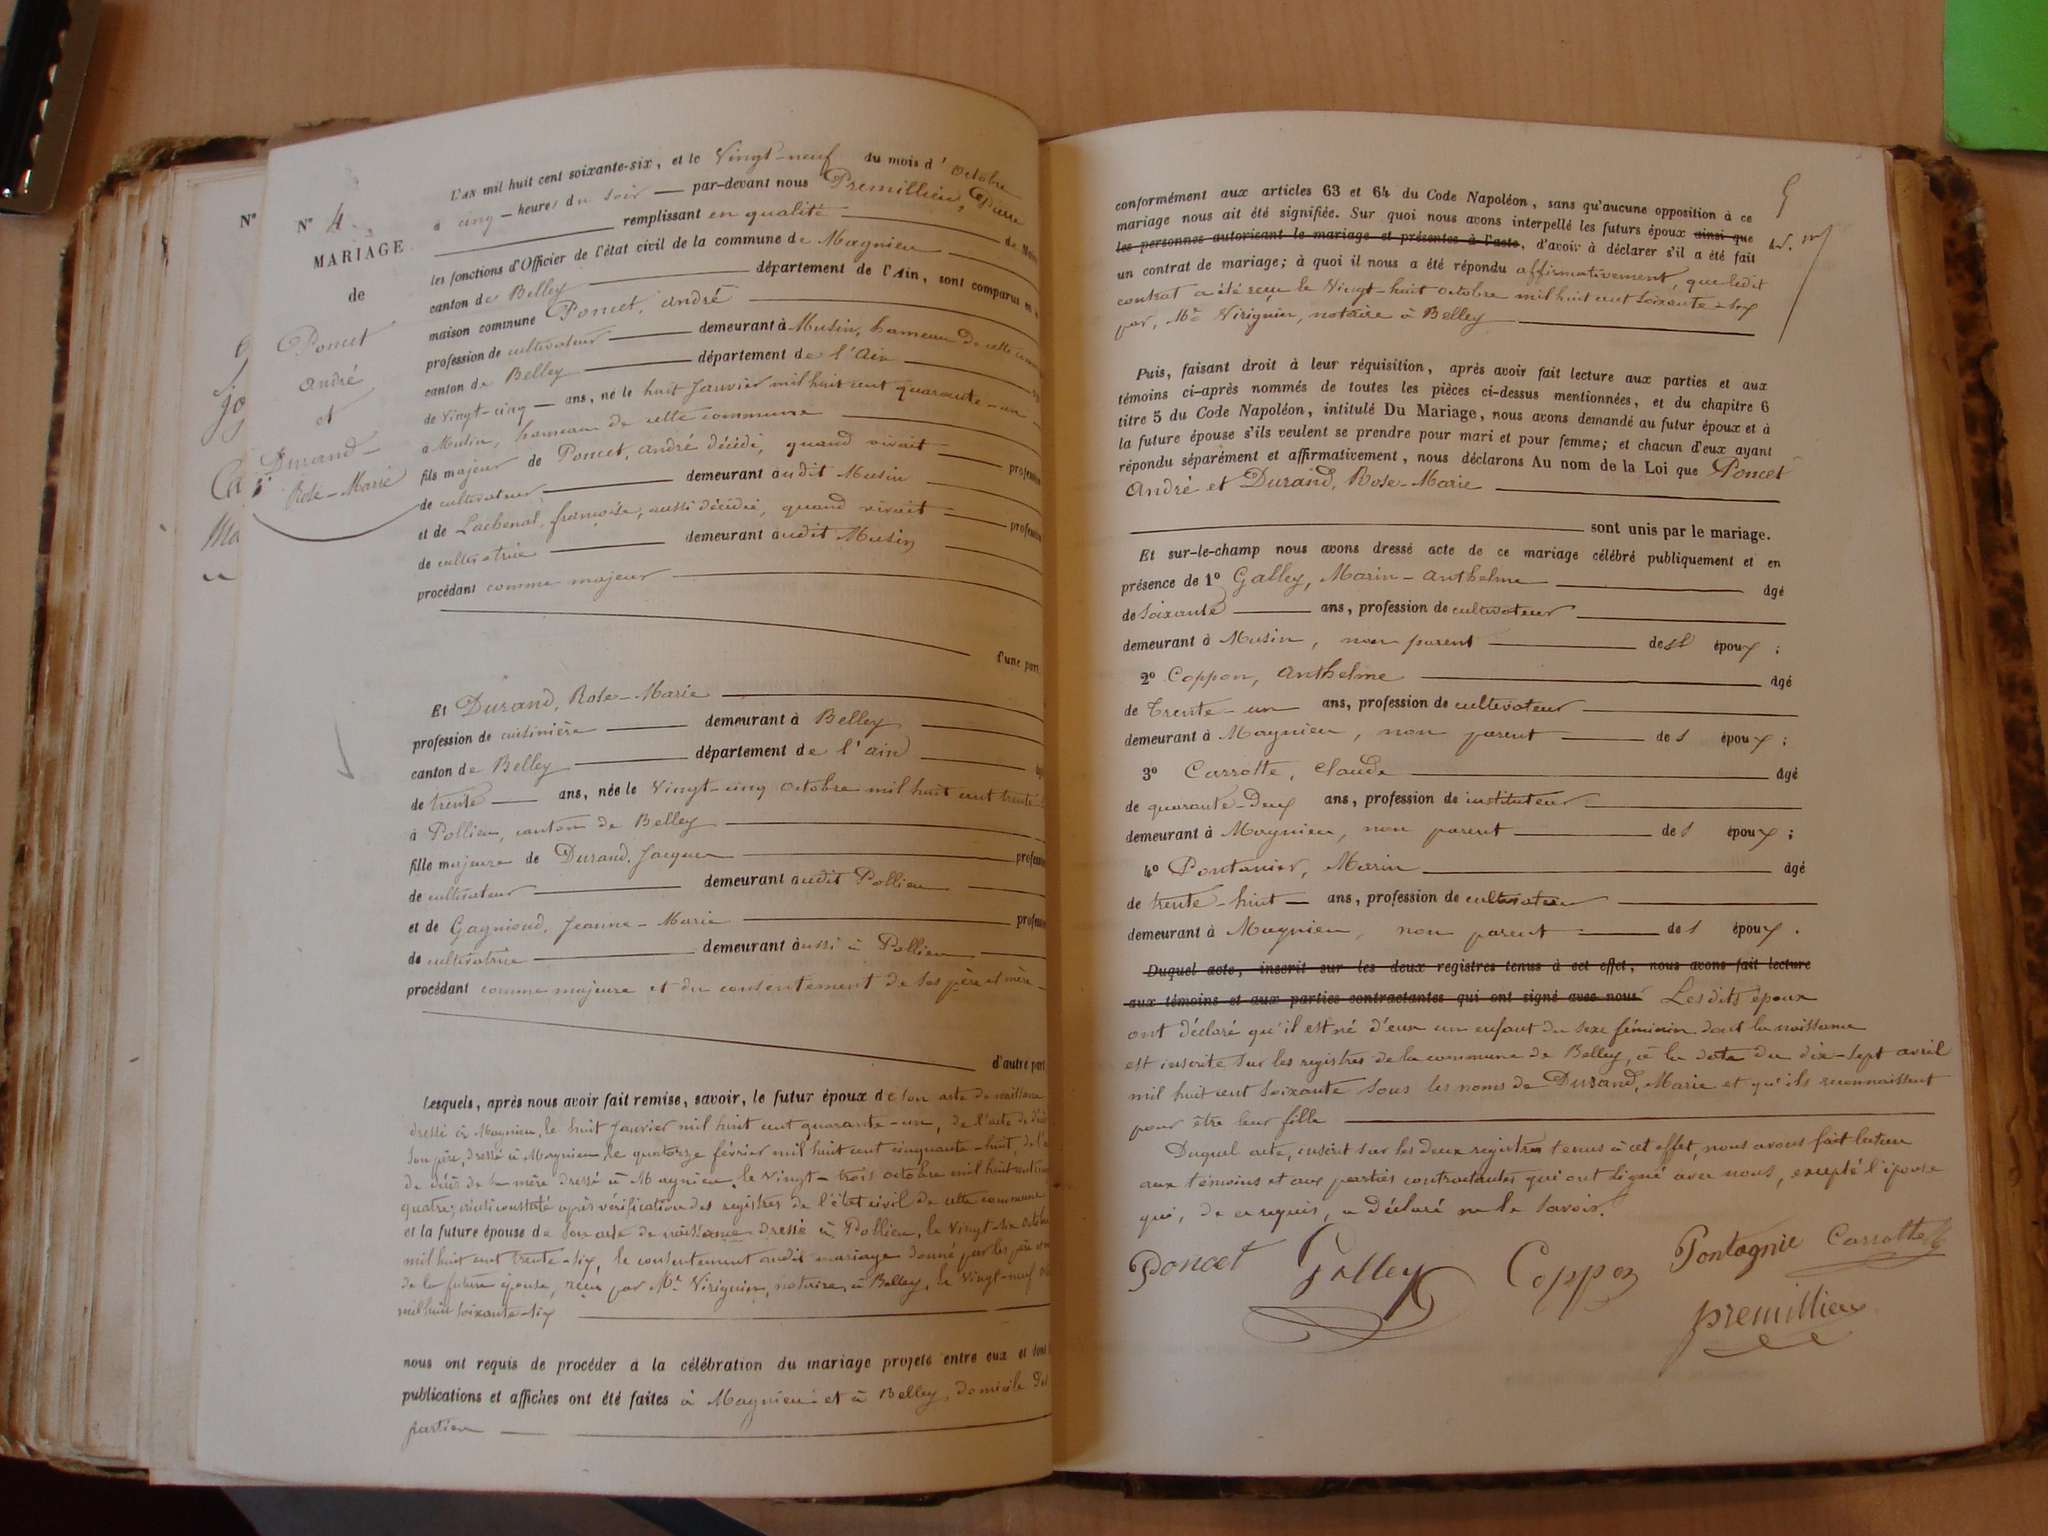 N°
N° 4.
MARIAGE
de
Poncet
André
et
Durand
Rose-Marie
L'AN mil huit cent soixante-six, et le Vingt-neuf du mois d'octobre
à cinq heures du soir par-devant nous Premillieu, Pierre
remplissant en qualité de
les fonctions d'Officier de l'état civil de la commune de Magnieu
canton de Belley département de l'Ain, sont comparus
maison commune Poncet, André
profession de cultivateur demeurant à Musin, hameau de cette
canton de Belley département de l'Ain
de Vingt-cinq ans, né le huit Janvier mil huit cent quarante-un
à Musin, hameau de cette commune
fils majeur de Poncet, André décédé, quand vivait profession
de cultivateur demeurant audit Musin
et de Lachenal, françoise, aussi décédée, quand vivait profession
de cultivatrice demeurant audit Musin
procédant comme majeur
d'une part
Et Durand, Rose-Marie
profession de cuisinière demeurant à Belley
canton de Belley département de l'ain
de trente ans, née le Vingt-cinq octobre mil huit cent trente
à Pollieu, canton de Belley
fille majeure de Durand, Jacques
de cultivateur demeurant audit Pollieu
et de Gagnioud, Jeanne-Marie
de cultivatrice demeurant aussi à Pollieu
procédant comme majeure et du consentement de ses père et mère
d'autre part
Lesquels, après nous avoir fait remise, savoir, le futur époux de son acte de naissance
dressé à Magnieu, le huit Janvier mil huit cent quarante-un, de l'acte de
son père, dressé à Magnieu, le quatorze février mil huit cent cinquante-huit, de
de décès de sa mère dressé à Magnieu, le Vingt-trois octobre mil huit cent
quatre, ainsi constaté après vérification des registres de l'état civil de cette commune
et la future épouse de son acte de naissance dressé à Pollieu, le Vingt-six octobre
mil huit cent trente-six, le consentement audit mariage donné par les père et
de la future épouse, reçu par Me Viriguin, notaire à Belley, le Vingt-neuf
mil huit soixante-six
nous ont requis de procéder à la célébration du mariage projeté entre eux et dont
publications et affiches ont été faites à Magnieu et à Belley, domicile des
parties
5
conformément aux articles 63 et 64 du Code Napoléon, sans qu'aucune opposition à ce
mariage nous ait été signifiée. Sur quoi nous avons interpellé les futurs époux ainsi que
les personnes autorisant le mariage et présentes à l'acte, d'avoir à déclarer s'il a été fait
un contrat de mariage; à quoi il nous a été répondu affirmativement, que ledit
contrat a été reçu le Vingt-huit octobre mil huit cent soixante-six
par, Me Viriguin, notaire à Belley
Puis, faisant droit à leur réquisition, après avoir fait lecture aux parties et aux
témoins ci-après nommés de toutes les pièces ci-dessus mentionnées, et du chapitre 6
titre 5 du Code Napoléon, intitulé Du Mariage, nous avons demandé au futur époux et à
la future épouse s'ils veulent se prendre pour mari et pour femme; et chacun d'eux ayant
répondu séparément et affirmativement, nous déclarons Au nom de la Loi que Poncet
André et Durand, Rose-Marie
sont unis par le mariage.
Et sur-le-champ nous avons dressé acte de ce mariage célébré publiquement et en
présence de 1° Galley, Marin-Anthelme âgé
de Soixante ans, profession de cultivateur
demeurant à Musin, non parent des époux;
2° Coppon, Anthelme âgé
de Trente-un ans, profession de cultivateur
demeurant à Magnieu, non parent des époux;
3° Carrotte, Claude âgé
de quarante-deux ans, profession de instituteur
demeurant à Magnieu, non parent des époux;
4° Pontanier, Marin âgé
de trente-huit ans, profession de cultivateur
demeurant à Magnieu, non parent des époux.
Duquel acte, inscrit sur les deux registres tenus à cet effet, nous avons fait lecture
aux témoins et aux parties contractantes qui ont signé avec nous Les dits époux
ont déclaré qu'il est né d'eux un enfant du sexe féminin dont la naissance
est inscrite sur les registres de la commune de Belley, à la date du dix-sept avril
mil huit cent soixante sous les noms de Durand, Marie et qu'ils reconnaissent
pour être leur fille
Duquel acte, inscrit sur les deux registres tenus à cet effet, nous avons fait lecture
aux témoins et aux parties contractantes qui ont signé avec nous, excepté l'épouse
qui, de ce requis, a déclaré ne le savoir.
Poncet Galley Coppon Pontagnie Carrotte
premillieu